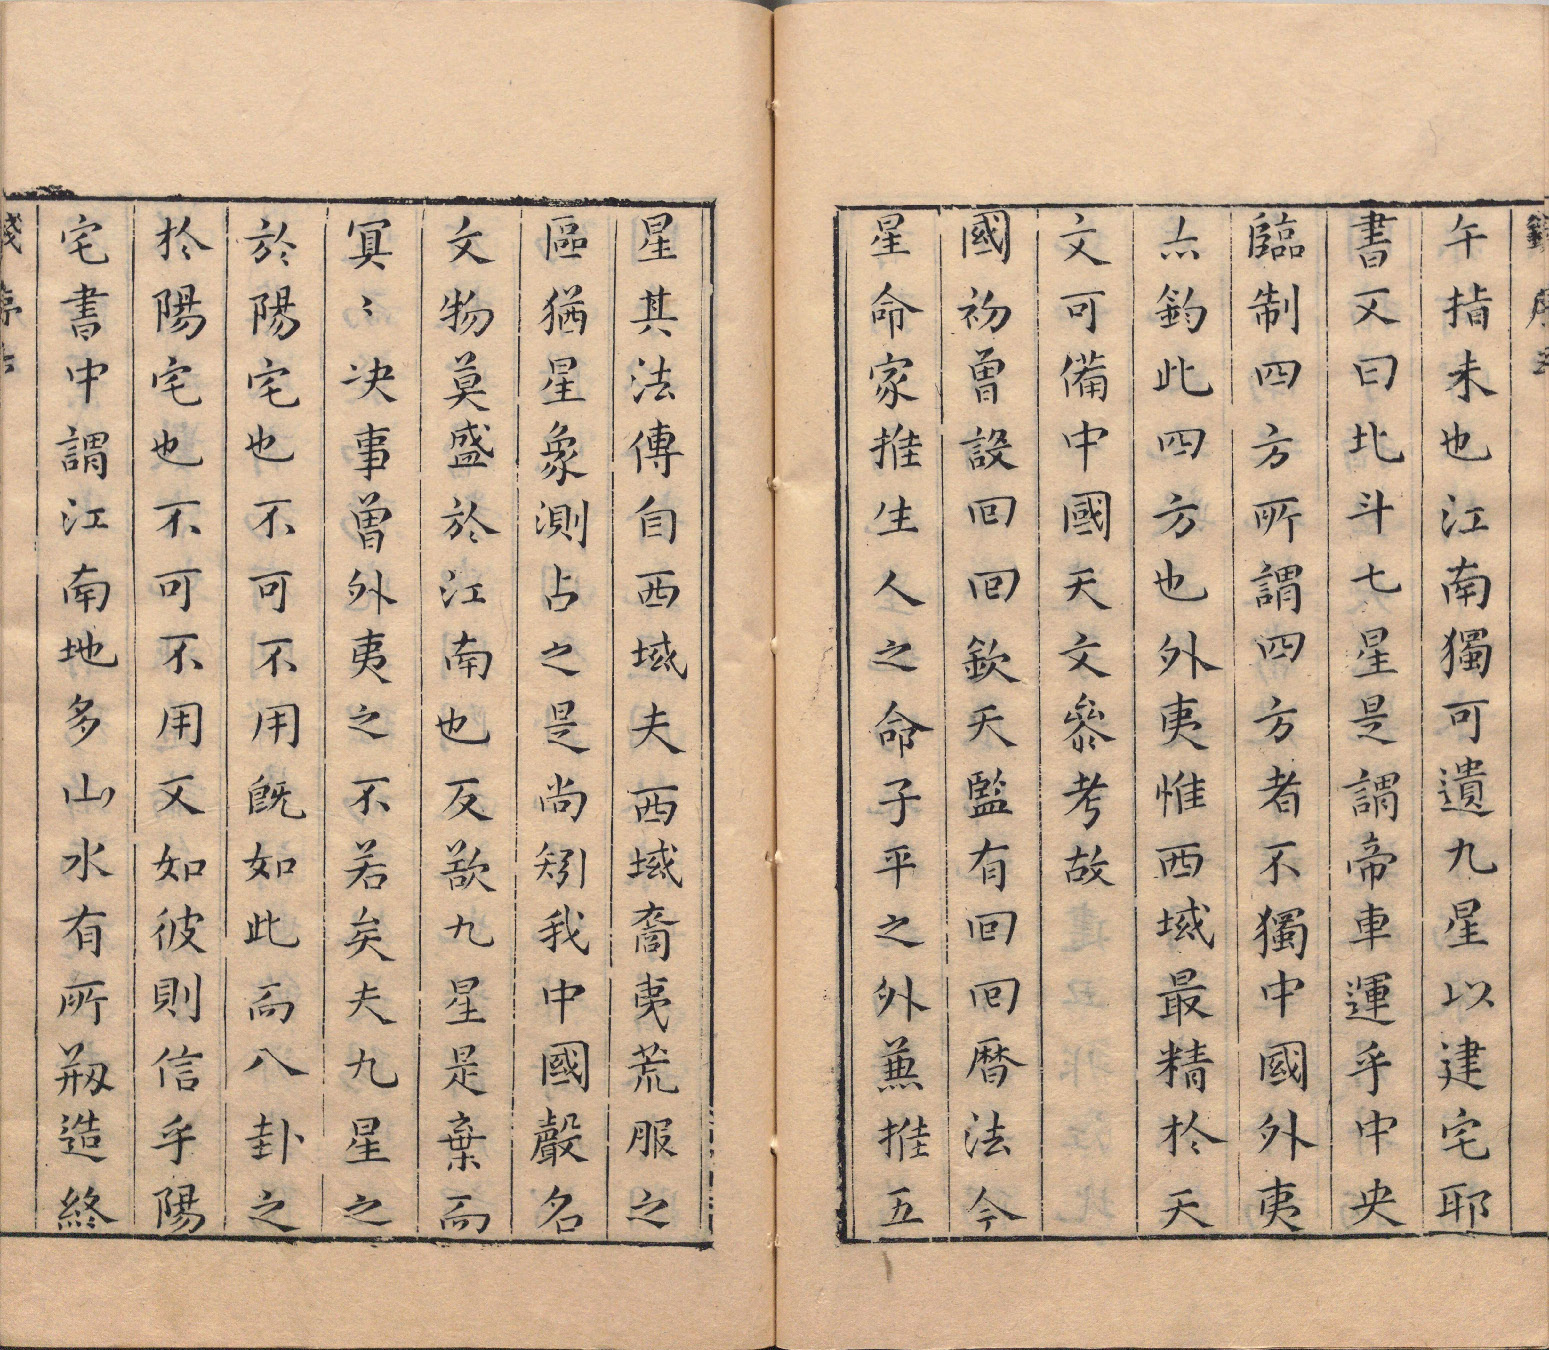 午指未也江南獨可遺九星以建宅耶
書又曰北斗七星是謂帝車運乎中央
臨制四方所謂四方者不獨中國外夷
亦鈞此四方也外夷惟西域最精於天
文可備中國天文叅考故
國初曾設回回欽天監有回回曆法今
星命家推生人之命子平之外兼推五
星其法傳自西域夫西域裔夷荒服之
區猶星象測占之是尚矧我中國聲名
文物莫盛於江南也反歆九星是棄而
冥〻决事曾外夷之不若矣夫九星之
於陽宅也不可不用既如此而八卦之
於陽宅也不可不用又如彼則信乎陽
宅書中謂江南地多山水有所剏造終